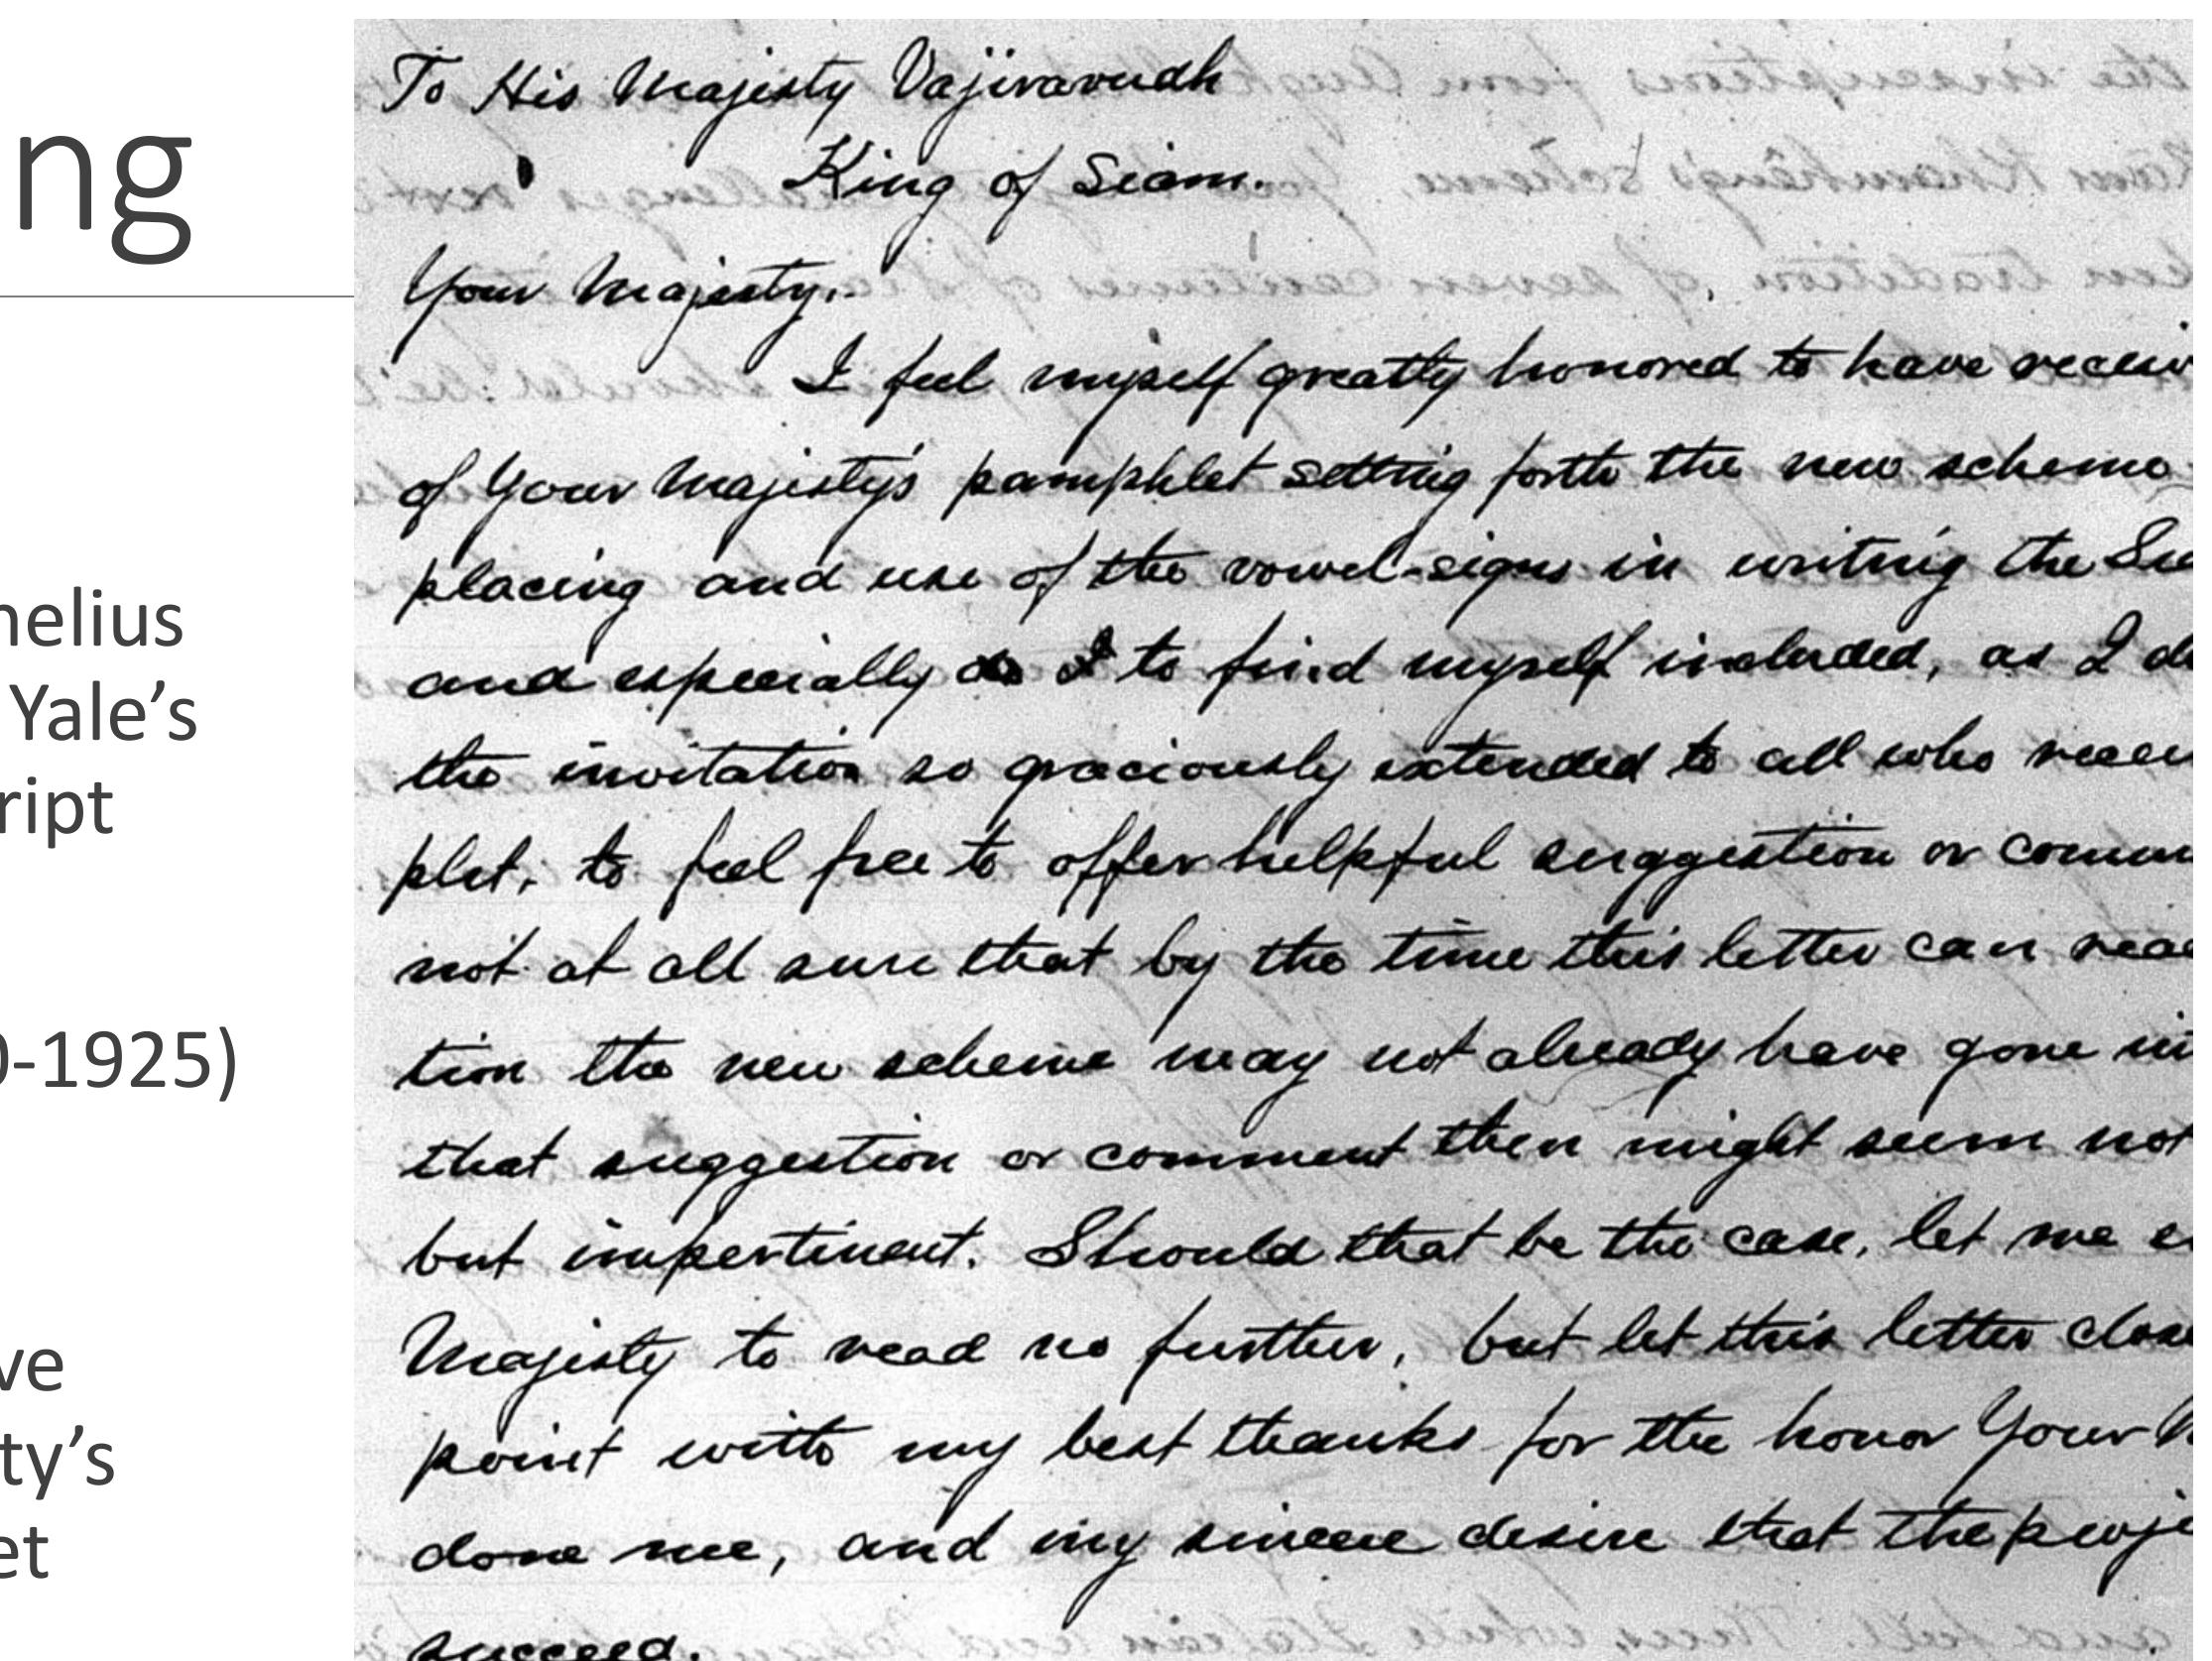 ng
nelius
Yale’s
ript
0-1925)
ve
ty’s
et
To His Majesty Vajiravudh
King of Siam.
Your Majesty,
I feel myself greatly honored to have receiv
of Your Majesty's pamphlet setting forth the new scheme
placing and use of the vowel-signs in writing the Sia
and especially do I to find myself included, as I do
the invitation so graciously extended to all who recei
plet, to feel free to offer helpful suggestion or comm
not at all sure that by the time this letter can reac
tion the new scheme may not already have gone in
that suggestion or comment then might seem not
but impertinent. Should that be the case, let me e
Majesty to read no further, but let this letter close
point with my best thanks for the honor Your M
done me, and my sincere desire that the proje
succeed.